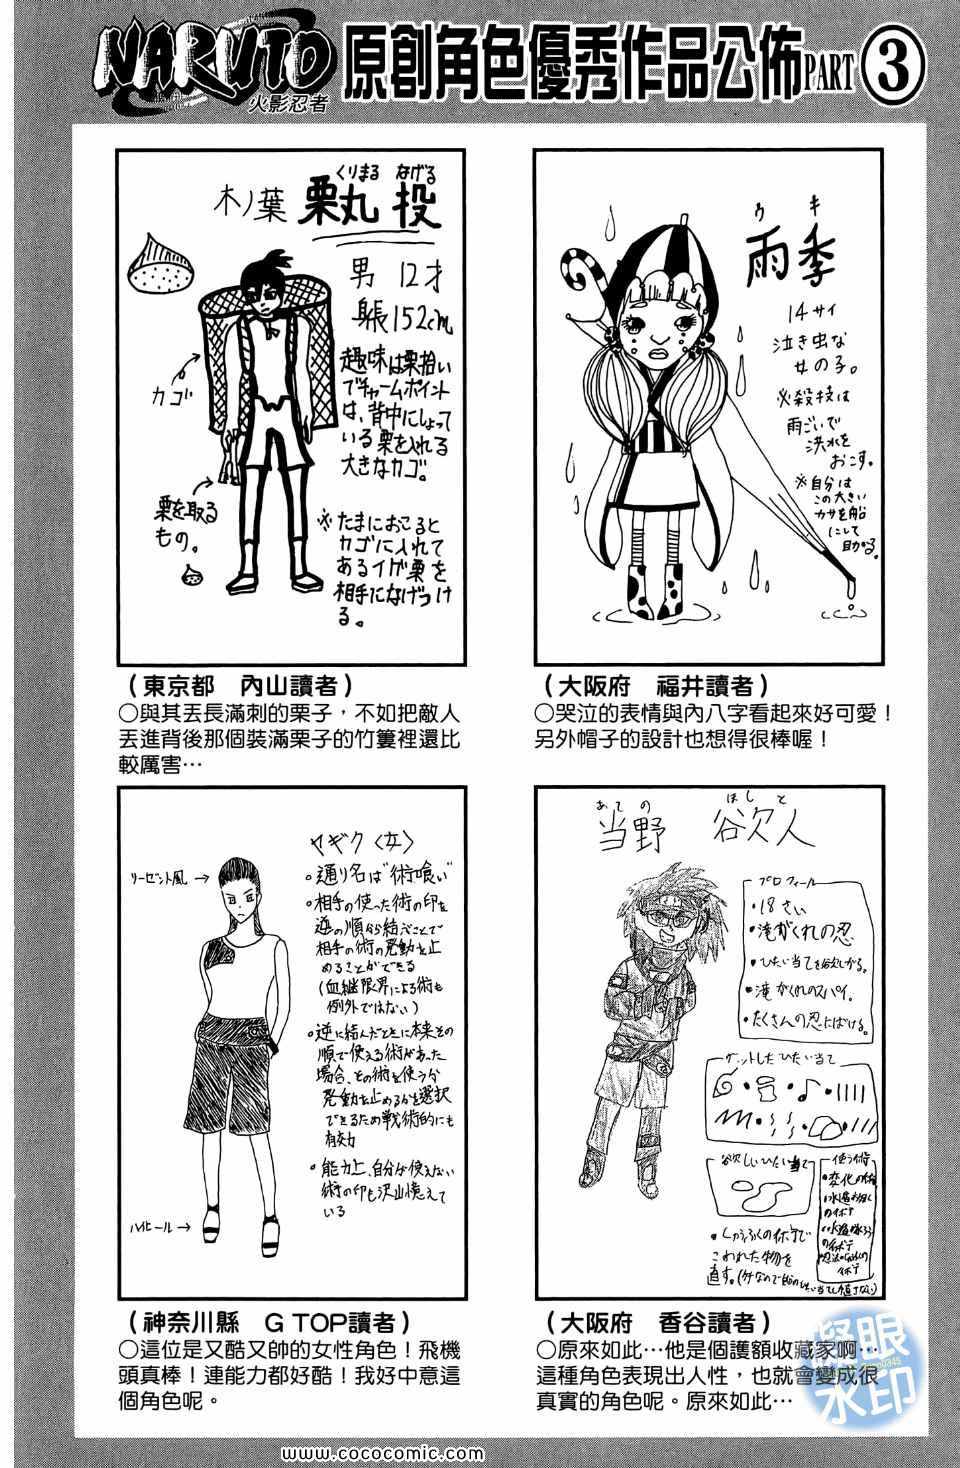 NARUTO
火影忍者
原創角色優秀作品公佈PART③
くりまる なげる
木ノ葉 栗丸 投
男 12才
身長152cm
趣味は栗拾い
でチャームポイント
は、背中にしょって
いる栗を入れる
大きなカゴ。
カゴ
栗を取る
もの。
※たまにおこると
カゴに入れて
あるイガ栗を
相手になげつけ
る。
ウ キ
雨季
14サイ
泣き虫な
女の子。
必殺技は
雨ごいで
洪水を
おこす。
※自分は
この大きい
カサを船
にして
助かる。
(東京都 內山讀者)
○與其丟長滿刺的栗子,不如把敵人
丟進背後那個裝滿栗子的竹簍裡還比
較厲害…
(大阪府 福井讀者)
○哭泣的表情與內八字看起來好可愛!
另外帽子的設計也想得很棒喔!
リーゼント風→
ハイヒール→
ヤギク〈女〉
○通り名は“術喰い”
○相手の使った術の印を
逆の順から結ぶことで
相手の術の発動を止
めることができる
(血継限界による術も
例外ではない)
○逆に結んだときに本来その
順で使える術があった
場合、その術を使うか
発動を止めるかを選択
できるため戦術的にも
有効
○能力上、自分が使えない
術の印も沢山憶えて
いる
あての ほしと
当野 欲人
プロフィール
・18さい
・滝がくれの忍
・ひたい当てを欲しがる。
・滝がくれのスパイ。
・たくさんの忍にばける。
ゲットしたひたい当て
欲しいひたい当て
使う術
・変化の術
・しゅうふくの術で
こわれた物を
直す。
(神奈川縣 G TOP讀者)
○這位是又酷又帥的女性角色!飛機
頭真棒!連能力都好酷!我好中意這
個角色呢。
(大阪府 香谷讀者)
○原來如此…他是個護額收藏家啊…
這種角色表現出人性,也就會變成很
真實的角色呢。原來如此…
凝眼
水印
www.cococomic.com